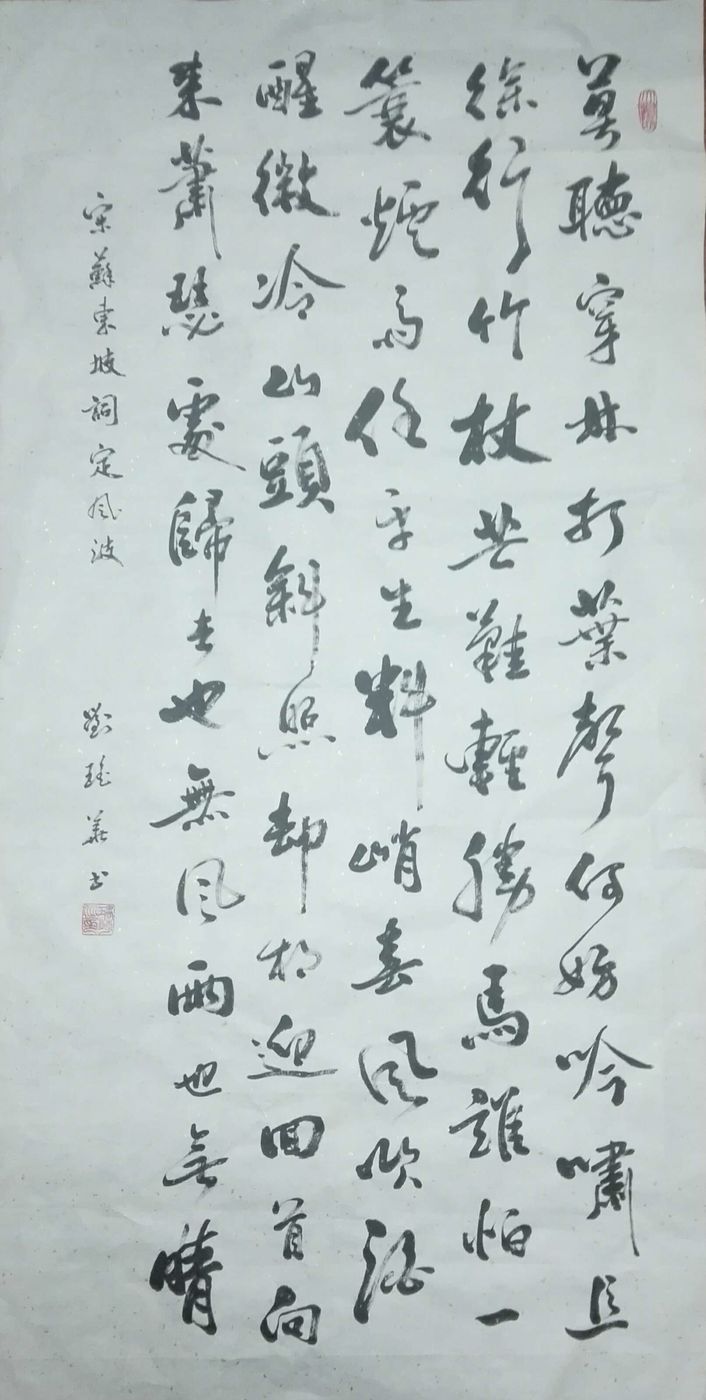 莫聽穿林打葉聲何妨吟嘯且
徐行竹杖芒鞋輕勝馬誰怕一
簑煙雨任平生料峭春風吹酒
醒微冷山頭斜照却相迎回首向
來蕭瑟處歸去也無風雨也無晴
宋蘇東坡詞定風波
劉華书